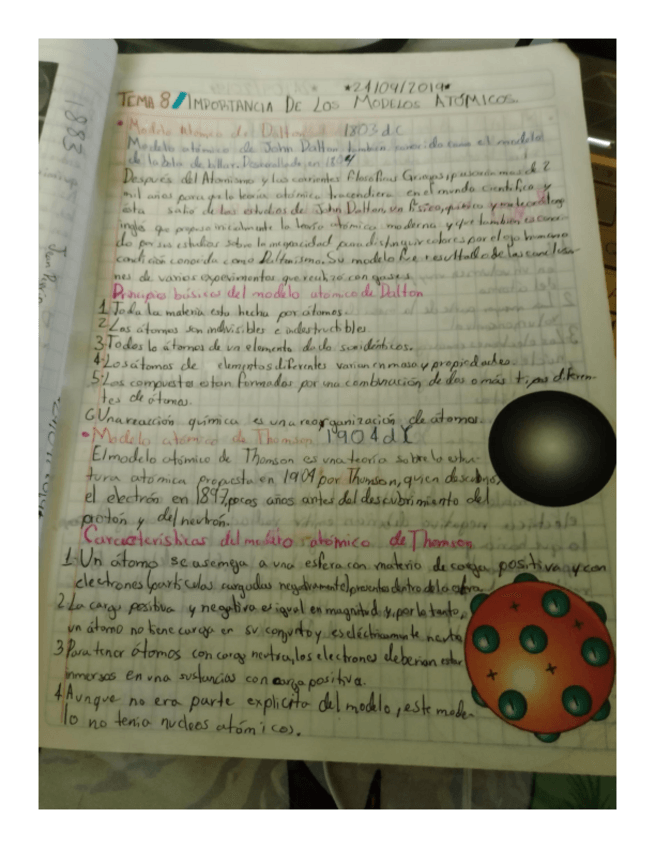 *24/09/2019*
TEMA 8 // IMPORTANCIA DE LOS MODELOS ATÓMICOS.
• Modelo Atómico de Dalton 1803 d.C
Modelo atómico de John Dalton también conocido como el modelo
de la bola de billar. Desarrollado en 1804
Después del Atomismo y las corrientes filosofías Griegas pasarían mas de 2
mil años para que la teoría atómica trascendiera en el mundo científico y
ésta salio de los estudios de John Dalton, un físico, químico y meteorólogo
inglés que propuso inicialmente la teoría atómica moderna y que también es conoci-
do por sus estudios sobre la incapacidad para distinguir colores por el ojo humano
condición conocida como Daltonismo. Su modelo fue resultado de las conclusio-
nes de varios experimentos que realizó con gases.
Principio básicos del modelo atómico de Dalton
1. Toda la materia esta hecha por átomos.
2. Los átomos son indivisibles e indestructibles
3. Todos lo átomos de un elemento dado son idénticos.
4. Los átomos de elementos diferentes varian en masa y propiedades.
5. Los compuesto estan formados por una combinación de dos o más tipos diferen-
tes de átomos.
6. Una reacción química es una reorganización de átomos.
• Modelo atómico de Thomson 1904 d.C
El modelo atómico de Thomson es una teoría sobre la estruc-
tura atómica propuesta en 1904 por Thomson, quien descubrió,
el electrón en 1897, pocos años antes del descubrimiento del
protón y del neutrón.
Características del modelo atómico de Thomson
1. Un átomo se asemeja a una esfera con materia de carga positiva y con
electrones (partículas cargadas negativamente) presentes dentro de la esfera.
2. La carga positiva y negativa es igual en magnitud y, por lo tanto,
un átomo no tiene carga en su conjunto y es eléctricamente neutro
3. Para tener átomos con carga neutra, los electrones deberían estar
inmersos en una sustancias con carga positiva.
4. Aunque no era parte explicita del modelo, este mode-
lo no tenia nucleos atómicos.
1883